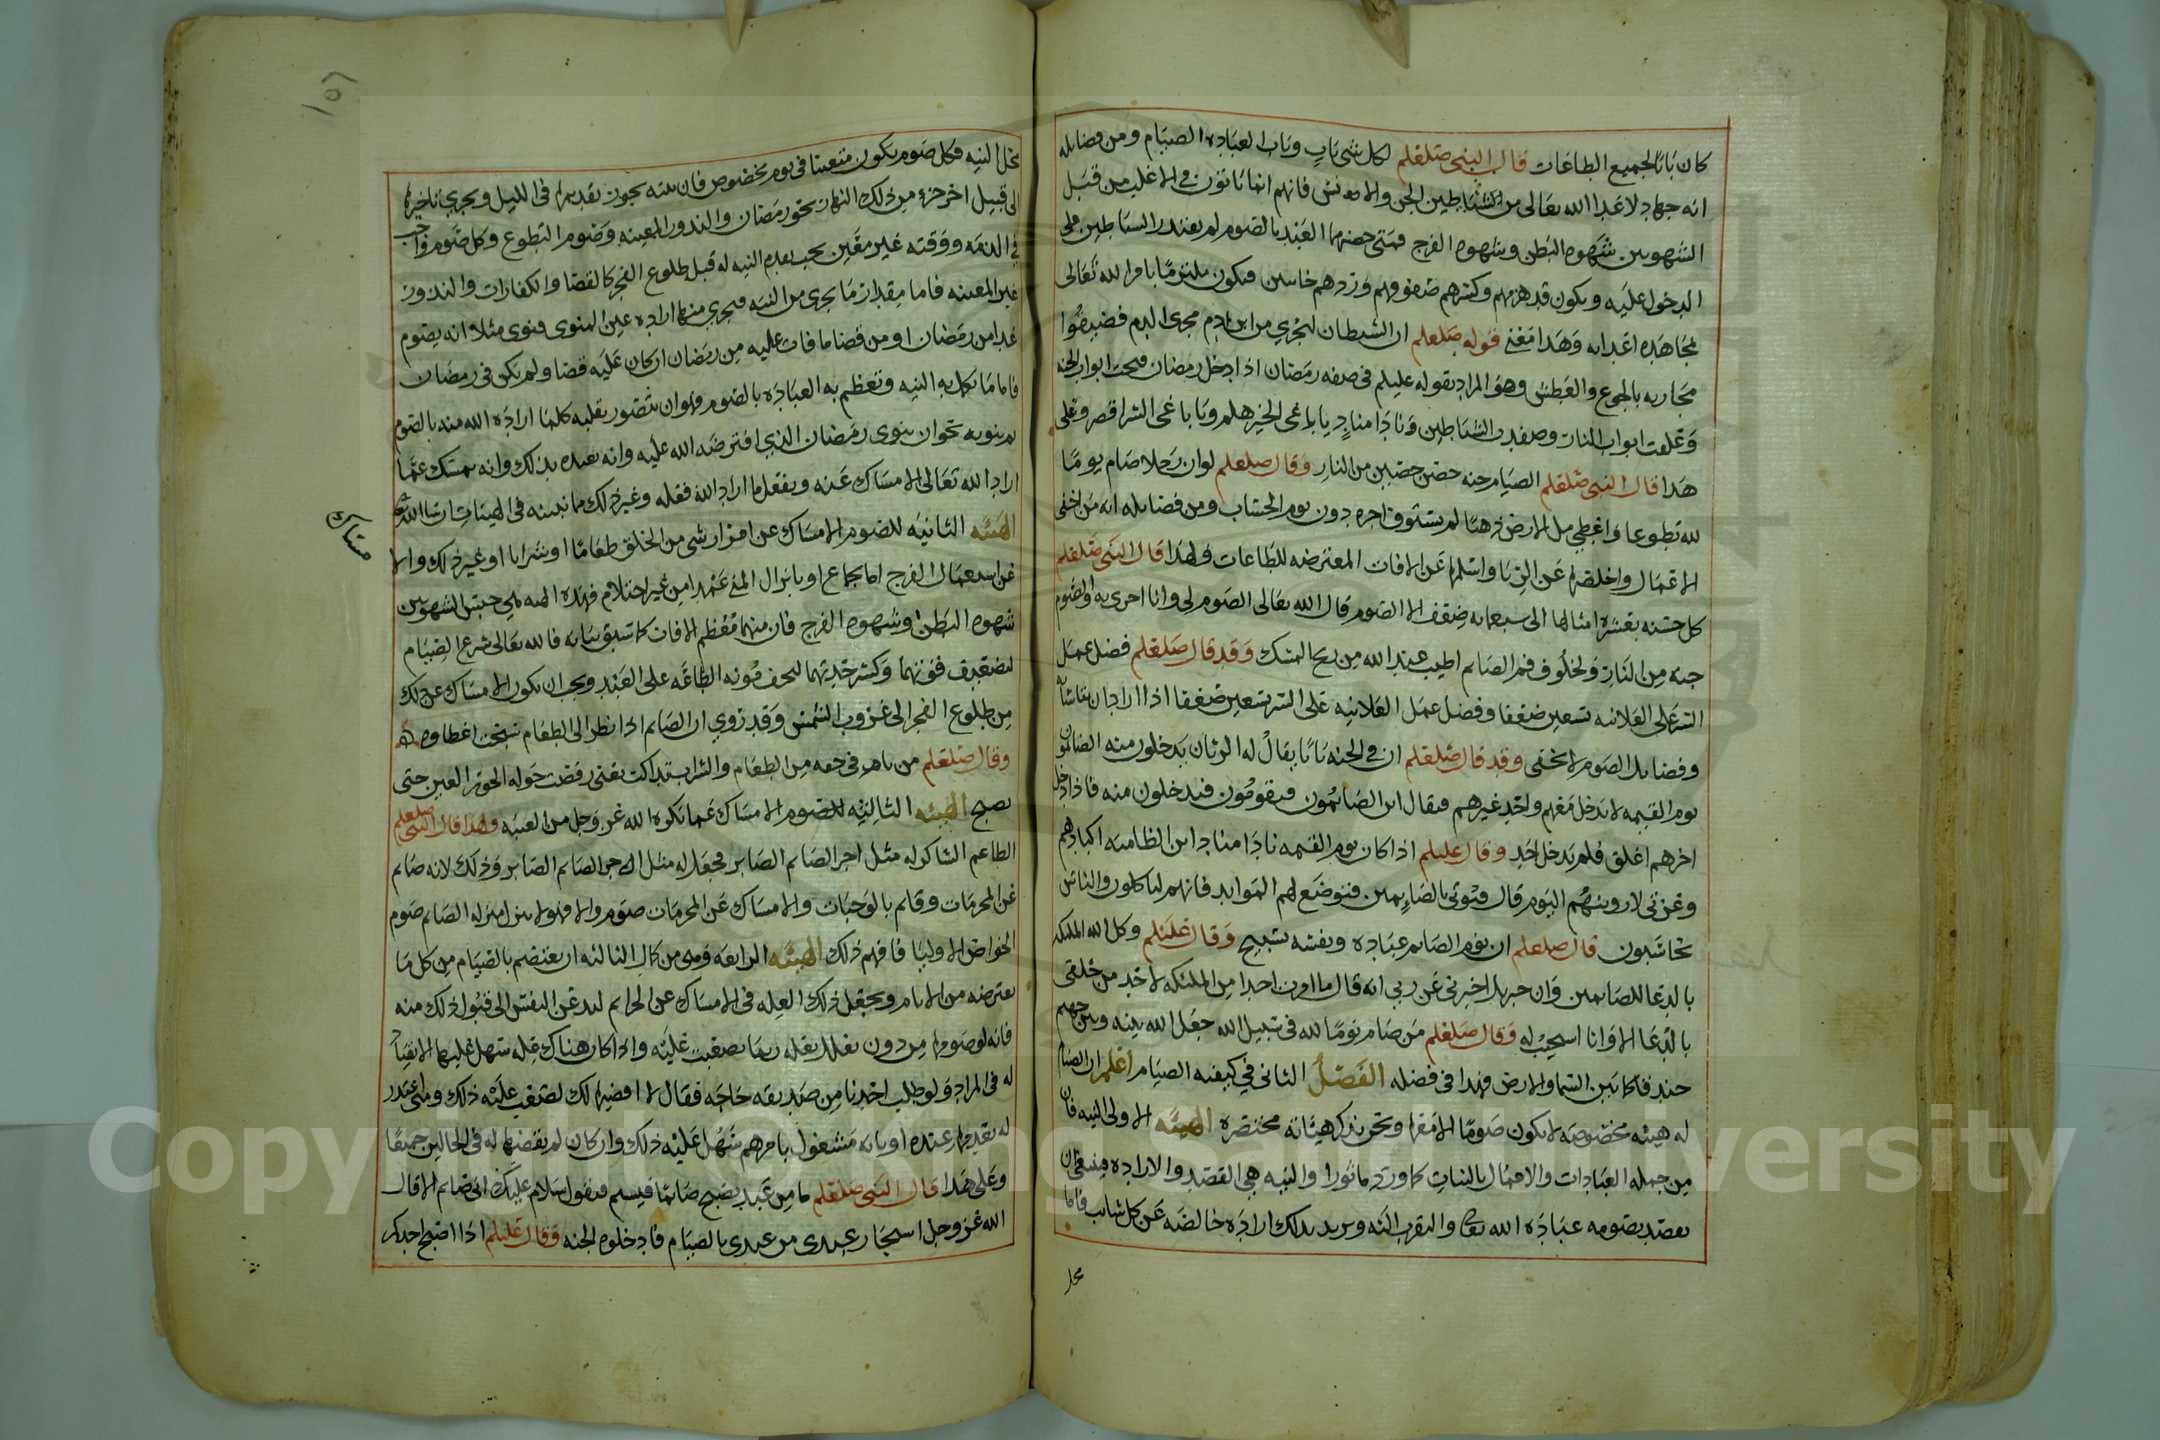 كان بابًا لجميع الطاعات قال النبي صلعلم لكل شي باب وباب العبادة الصيام ومن فضايله
انه جهاد لاعدا الله تعالى من الشياطين الجن والانس فانهم انما ياتون في الاغلب من قبل
الشهوتين شهوه البطن وشهوه الفرج فمتى حصنهما العبد بالصوم لم يقتدر الشياطين على
الدخول عليه ويكون قد هزمهم وكسرهم صفوفهم وردهم خاسين فيكون ملتزمًا بامر الله تعالى
مجاهده اعدايه وهذا معنى قوله صلعلم ان الشيطان ليجري من ابن ادم مجرى الدم فضيقوا
مجاريه بالجوع والعطش وهو المراد بقوله عليلم في صفه رمضان اذا دخل رمضان فتحت ابواب الجنه
وغلقت ابواب النار وصفدت الشياطين ونادا مناد يا باغي الخير هلم ويا باغي الشر اقصر وعلى
هذا قال النبي صلعلم الصيام جنه حصن حصين من النار وقال صلعلم لو ان رجلا صام يومًا
لله تطوعا واعطي مل الارض ذهبًا لم يستوف اجره دون يوم الحساب ومن فضايله انه من اخفى
الاعمال واخلصها عن الريا واسلمها عن الافات المعترضه للطاعات ولهذا قال النبي صلعلم
كل حسنه بعشره امثالها الى سبعمايه ضعف الا الصوم قال الله تعالى الصوم لي وانا اجزي به والصوم
جنه من النار ولخلوف فم الصايم اطيب عند الله من ريح المسك وقد قال صلعلم فضل عمل
السر على العلانيه تسعين ضعفا وفضل عمل العلانيه على السر تسعين ضعفا اذا اراد ان يتاسا به
وفضايل الصوم لا تخفى وقد قال صلعلم ان في الجنه بابًا يقال له الريان يدخلون منه الصايمون
يوم القيمه لا يدخل معهم واحد غيرهم فيقال اين الصايمون فيقومون فيدخلون منه فاذا دخل
اخرهم اغلق فلم يدخل احد وقال عليلم اذا كان يوم القيمه نادا مناد اين الظاميه اكبادهم
وعزتي لاروينهم اليوم قال فيوتى بالصايمين فتوضع لهم الموايد فانهم لياكلون والناس
يحاسبون قال صلعلم ان نوم الصايم عباده ونفسه تسبيح وقال عليلم وكل الله الملئكه
بالدعا للصايمين وان جبريل اخبرني عن ربي انه قال ما امرت احدا من الملئكه لاحد من خلقي
بالدعا الا وانا استجيب له وقال صلعلم من صام يومًا لله في سبيل الله جعل الله بينه وبين جهنم
خندقا كما بين السما والارض فهذا في فضله الفصل الثاني في كيفيه الصيام اعلم ان الصيام
له هيئه مخصوصه لا يكون صومًا الا معها ونحن نذكر هيئاته مختصره الهيئه الاولى النيه فان
من جمله العبادات والاعمال بالنيات كما ورد ماثورا والنيه هي القصد والاراده فينبغي ان
يقصد بصومه عباده الله تعالى والتقرب اليه ويريد بذلك اراده خالصه عن كل شايب فاما
محل
١٥٦
محل النيه فكل صوم يكون متعينا في يوم مخصوص فان نيته يجوز تقديمها في الليل ويجري تاخيرها
الى قبيل اخر جزء من ذلك النهار نحو رمضان والنذور المعينه وصوم التطوع وكل صوم واجب
في الذمه ووقته غير معين يجب تقديم النيه له قبل طلوع الفجر كالقضا والكفارات والنذور
غير المعينه فاما مقدار ما يجري من النيه فيجري منها اراده عين المنوى فينوى مثلا انه يصوم
غدا من رمضان او من قضا ما فات عليه من رمضان ان كان عليه قضا ولم يكن في رمضان
فاما ما تكمل به النيه وتعظم به العباده بالصوم فهو ان يتصور بقلبه كلما اراده الله منه بالصوم
ثم ينويه نحو ان ينوى رمضان الذي افترضه الله عليه وانه تعبده بذلك وانه يمسك عما
اراد الله تعالى الامساك عنه ويفعل ما اراد الله فعله وغير ذلك مما نبينه في الهيئات ان شا الله تعالى
الهيئه الثانيه للصوم الامساك عن امرار شي من الحلق طعامًا او شرابا او غير ذلك والامساك
عن استعمال الفرج اما بجماع او بانزال المني عمدا من غير احتلام فهذه الهيئه هي حبس الشهوتين
شهوه البطن وشهوه الفرج فان منهما معظم الافات كما سبق بيانه فالله تعالى شرع الصيام
لتضعيف قوتهما وكسر حدتهما لتخف مئونه الطاعه على العبد ويجب ان يكون الامساك عن ذلك
من طلوع الفجر الى غروب الشمس وقد روي ان الصايم اذا نظر الى الطعام سبحت اعضاوه
وقال صلعلم من تاهر في حقه من الطعام والشراب بتداكت يعني رفضت حوله الحور العين حتى
يصبح الهيئه الثالثه للصوم الامساك عما يكره الله عز وجل من الغيبه ولهذا قال النبي صلعلم
الطاعم الشاكر له مثل اجر الصايم الصابر فجعل له مثل اجر الصايم الصابر وذلك لانه صايم
عن المحرمات وقايم بالواجبات والامساك عن المحرمات صوم والا فهو لا ينزل منزله الصايم صوم
الخواص الاوليا فافهم ذلك الهيئه الرابعه وهي من كمال الثالثه ان يعتصم بالصيام من كل ما
يعترضه من الاثام ويجعل ذلك العله في الامساك عن الحرام لتدعن النفس الى قبول ذلك منه
فانه لو صومها من دون تعلل بعله ربما يصعبت عليه واذا كان هناك عله سهل عليها الانقياد
له في المراد ولو طلب احدنا من صديقه حاجه فقال لا اقضيها لك لصعب عليه ذلك ومتى اعتذر
له بعدمها عنده او بانه مشغول بامر هم سهل عليه ذلك وان كان لم يقضها له في الحالين جميعًا
وعلى هذا قال النبي صلعلم ما من عبد يصبح صايمًا فيشتم فيقول سلام عليك اني صايم الا قال
الله عز وجل استجار عبدى من عبدى بالصيام فادخلوه الجنه وقال عليلم اذا اصبح احدكم
مساك
Copyright © King Saud University